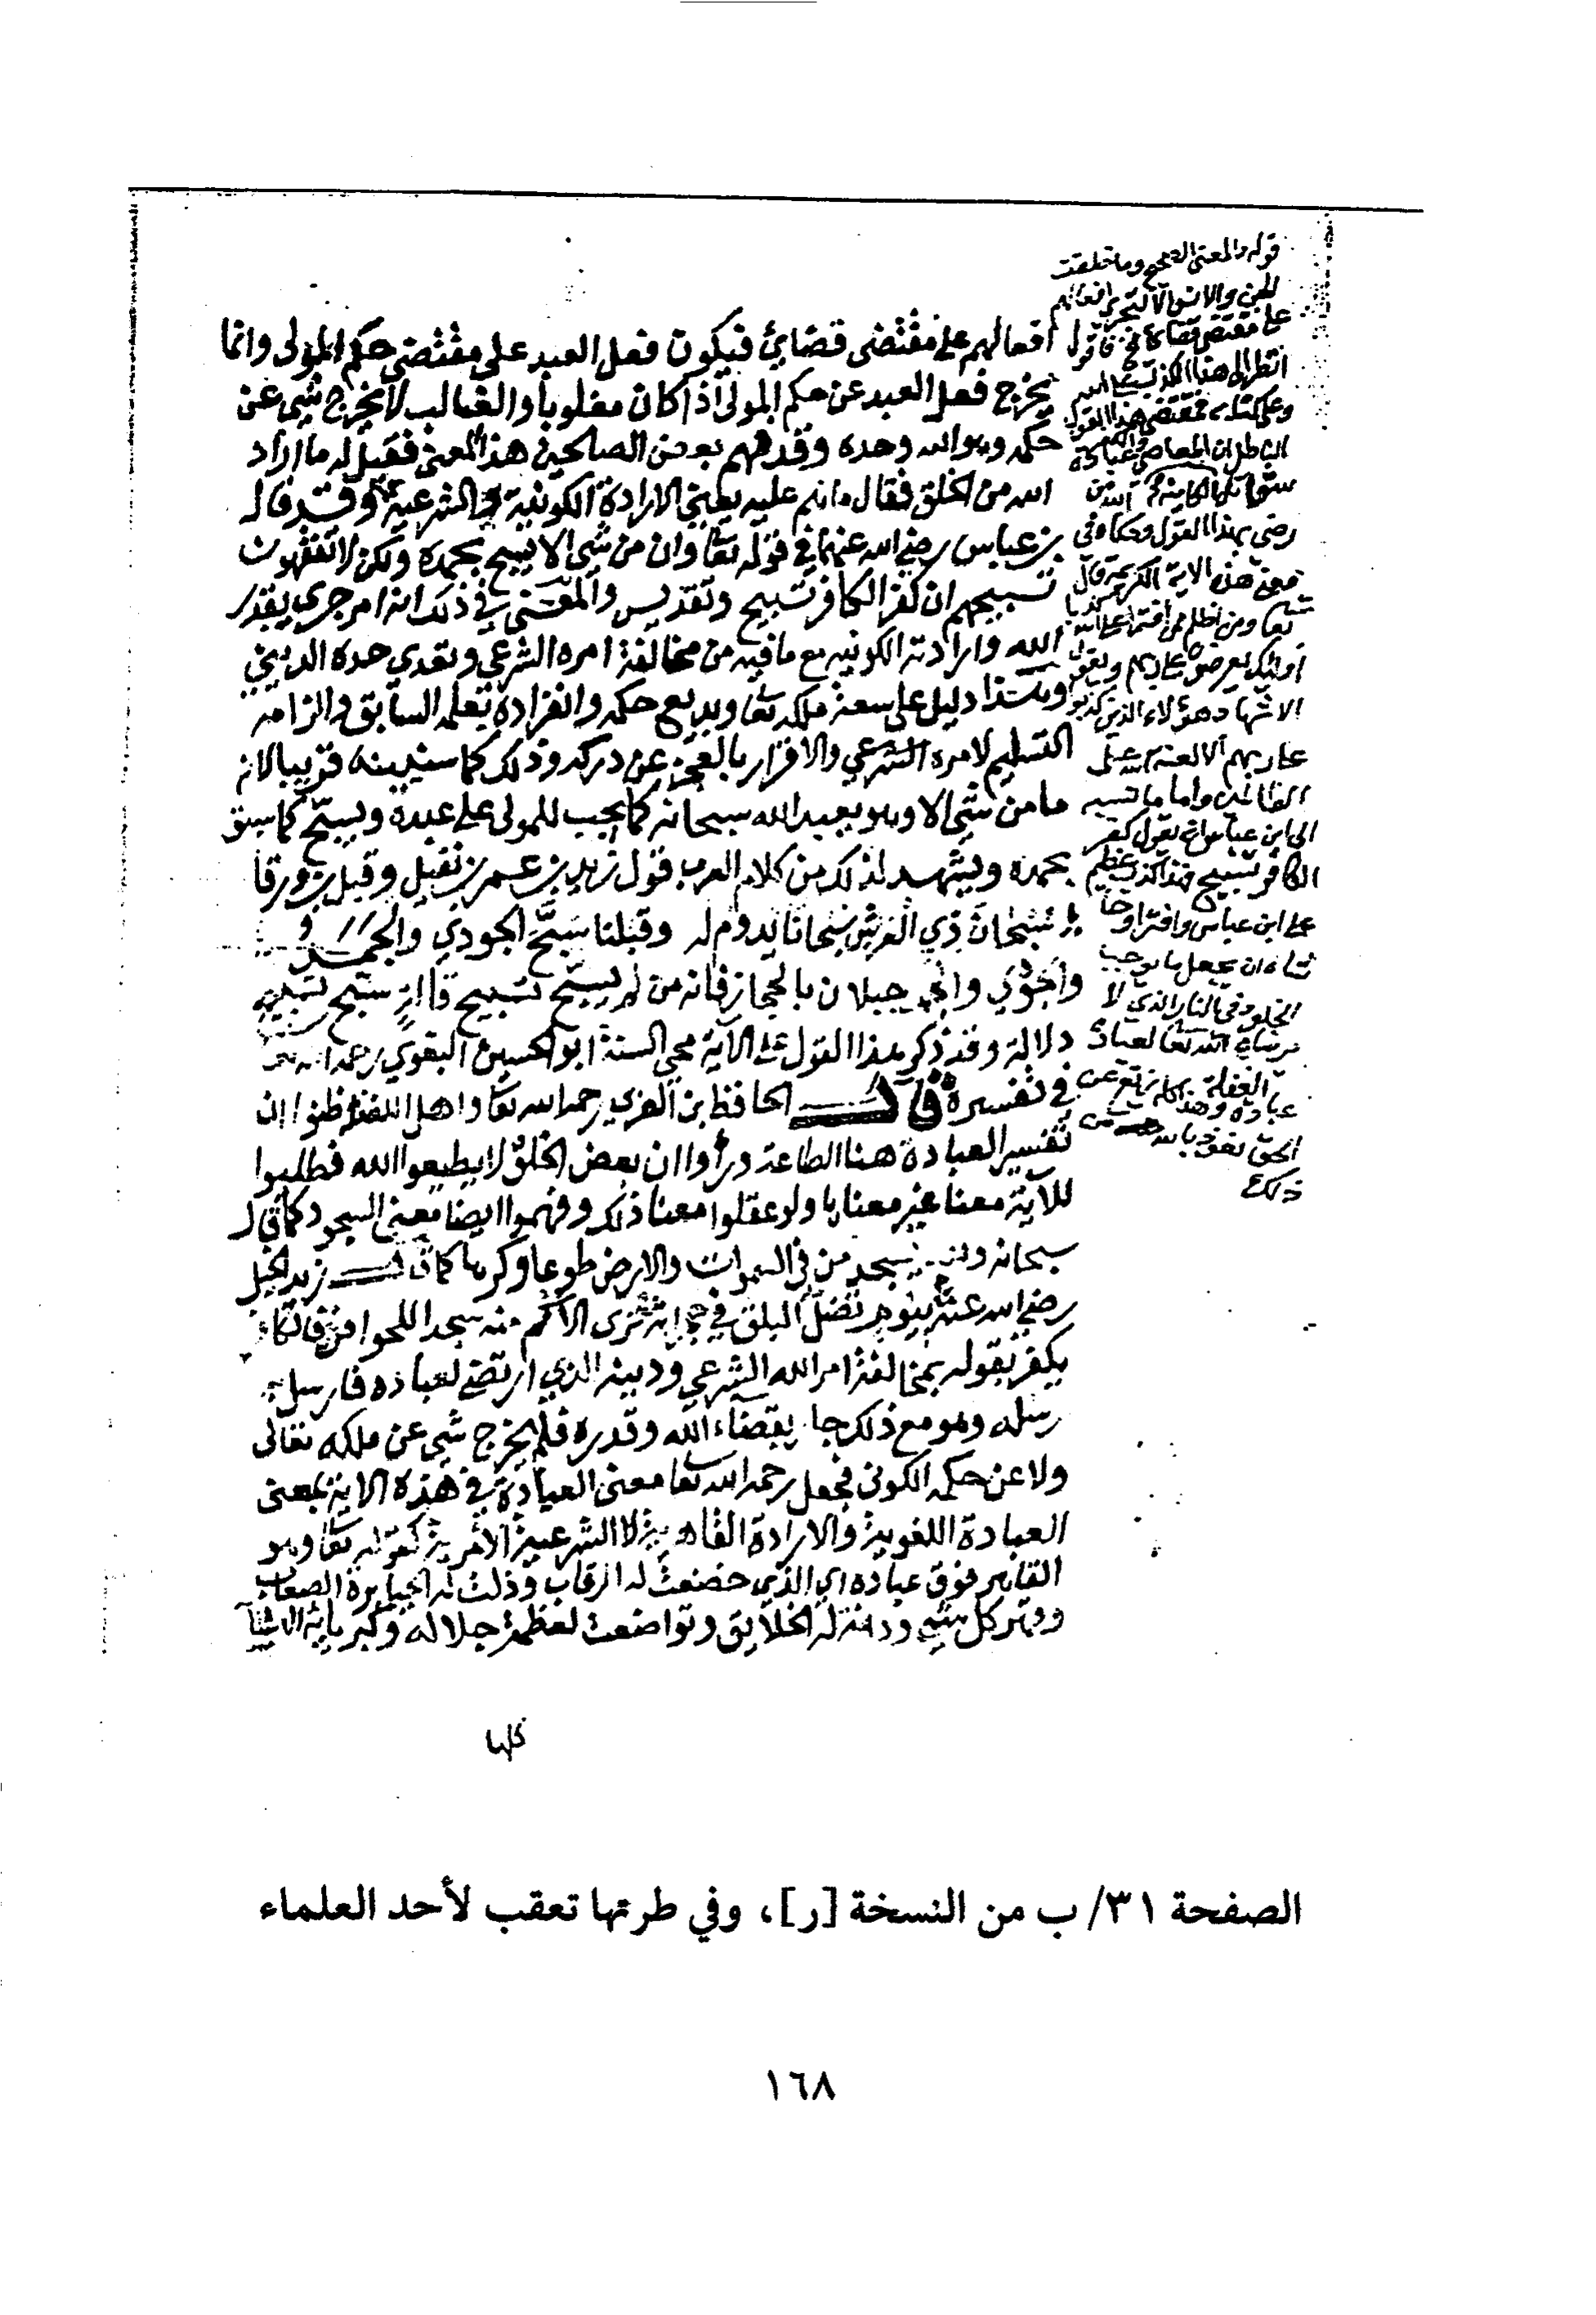 افعالهم على مقتضى قضائي فيكون فعل العبد على مقتضى حكم المولى وانما
يخرج فعل العبد عن حكم المولى اذا كان مغلوبا والغالب لا يخرج شي عن
حكمه وهو الله وحده وقد فهم بعض الصالحين هذا المعنى فقيل له ما اراد
الله من الخلق فقال ما هم عليه يعني الارادة الكونية لا الشرعية وقد قال
بن عباس رضي الله عنهما في قوله تعا وان من شي الا يسبح بحمده ولكن لا تفقهون
تسبيحهم ان كفر الكافر تسبيح وتقديس والمعنى في ذلك انه امر جرى بقدر
الله وارادته الكونية مع ما فيه من مخالفة امره الشرعي وتعدي حده الديني
وهذا دليل على سعة ملكه تعا وبديع حكمه وانفراده بعلمه السابق والزامه
التسليم لامره الشرعي والاقرار بالعجز عن دركه وذلك كما سنبينه قريبا لانه
ما من شي الا وهو يعبد الله سبحانه كما يجب للمولى على عبده ويسبح كما سبق
بحمده ويشهد لذلك من كلام العرب قول زيد بن عمر بن نفيل وقيل بن ورقا
سبحان ذي العرش سبحانا يدوم له وقبلنا سبح الجودي والجمد
والجودي والجمد جبلان بالحجاز فانه من لم يسبح تسبيح قال سبح تسبيح
دلالة وقد ذكر هذا القول على الآية محي السنة ابو الحسين البغوي رحمه الله تعا
في تفسيره قال الحافظ بن العربي رحمه الله تعا واهل اللفظ ظنوا ان
تفسير العبادة هنا الطاعة وراوا ان بعض الخلق لا يطيعوا الله فطلبوا
للآية معنا غير معناها ولو عقلوا معنا ذلك وفهموا ايضا معنى السجود كما قال
سبحانه ولله يسجد من في السموات والارض طوعا وكرها كما قال زيد الخيل
رضي الله عنه بجمع تضل البلق في حجراته ترى الاكم منه سجدا للحوافر فالكا
يكفر بقوله بمخالفة امر الله الشرعي ودينه الذي ارتضى لعباده فارسل به
رسله وهو مع ذلك جا بقضاء الله وقدره فلم يخرج شي عن ملكه تعالى
ولا عن حكمه الكوني فجعل رحمه الله تعا معنى العبادة في هذه الاية بمعنى
العبادة اللغوية والارادة القاهرية لا الشرعية الأمرية كقوله تعا وهو
القاهر فوق عباده اي الذي خضعت له الرقاب وذلت له الجبابرة الصعاب
وقهر كل شي ودانت له الخلايق وتواضعت لعظمة جلاله وكبريائه الاشيآ
كلها
قوله والمعنى الصحيح وما خلقت
الجن والانس الا لتجري افعالهم
على مقتضى قضاي الخ فاقول
انظر الى هذا الكذب على الله
وعلى كتابه فمقتضى هذا القول
الباطل ان المعاصي عبادة
رضي بهذا القول وحكاه في
معنى هذه الاية الكريمة قال
تعا ومن اظلم ممن افترى على الله كذبا
اوليك يعرضون على ربهم ويقول
الاشهاد هؤلاء الذين كذبوا
على ربهم الا لعنة الله على
الظالمين واما ما نسبه
الى ابن عباس انه يقول كفر
الكافر تسبيح فهذا كذب عظيم
على ابن عباس وافترا وحا
شاه ان يجعل ما يوجب
الخلود في النار الذي لا
يرضاه الله تعا لعباده
الحق نعوذ بالله من
ذلك
الصفحة ٣١/ ب من النسخة [ر]، وفي طرتها تعقب لأحد العلماء
١٦٨